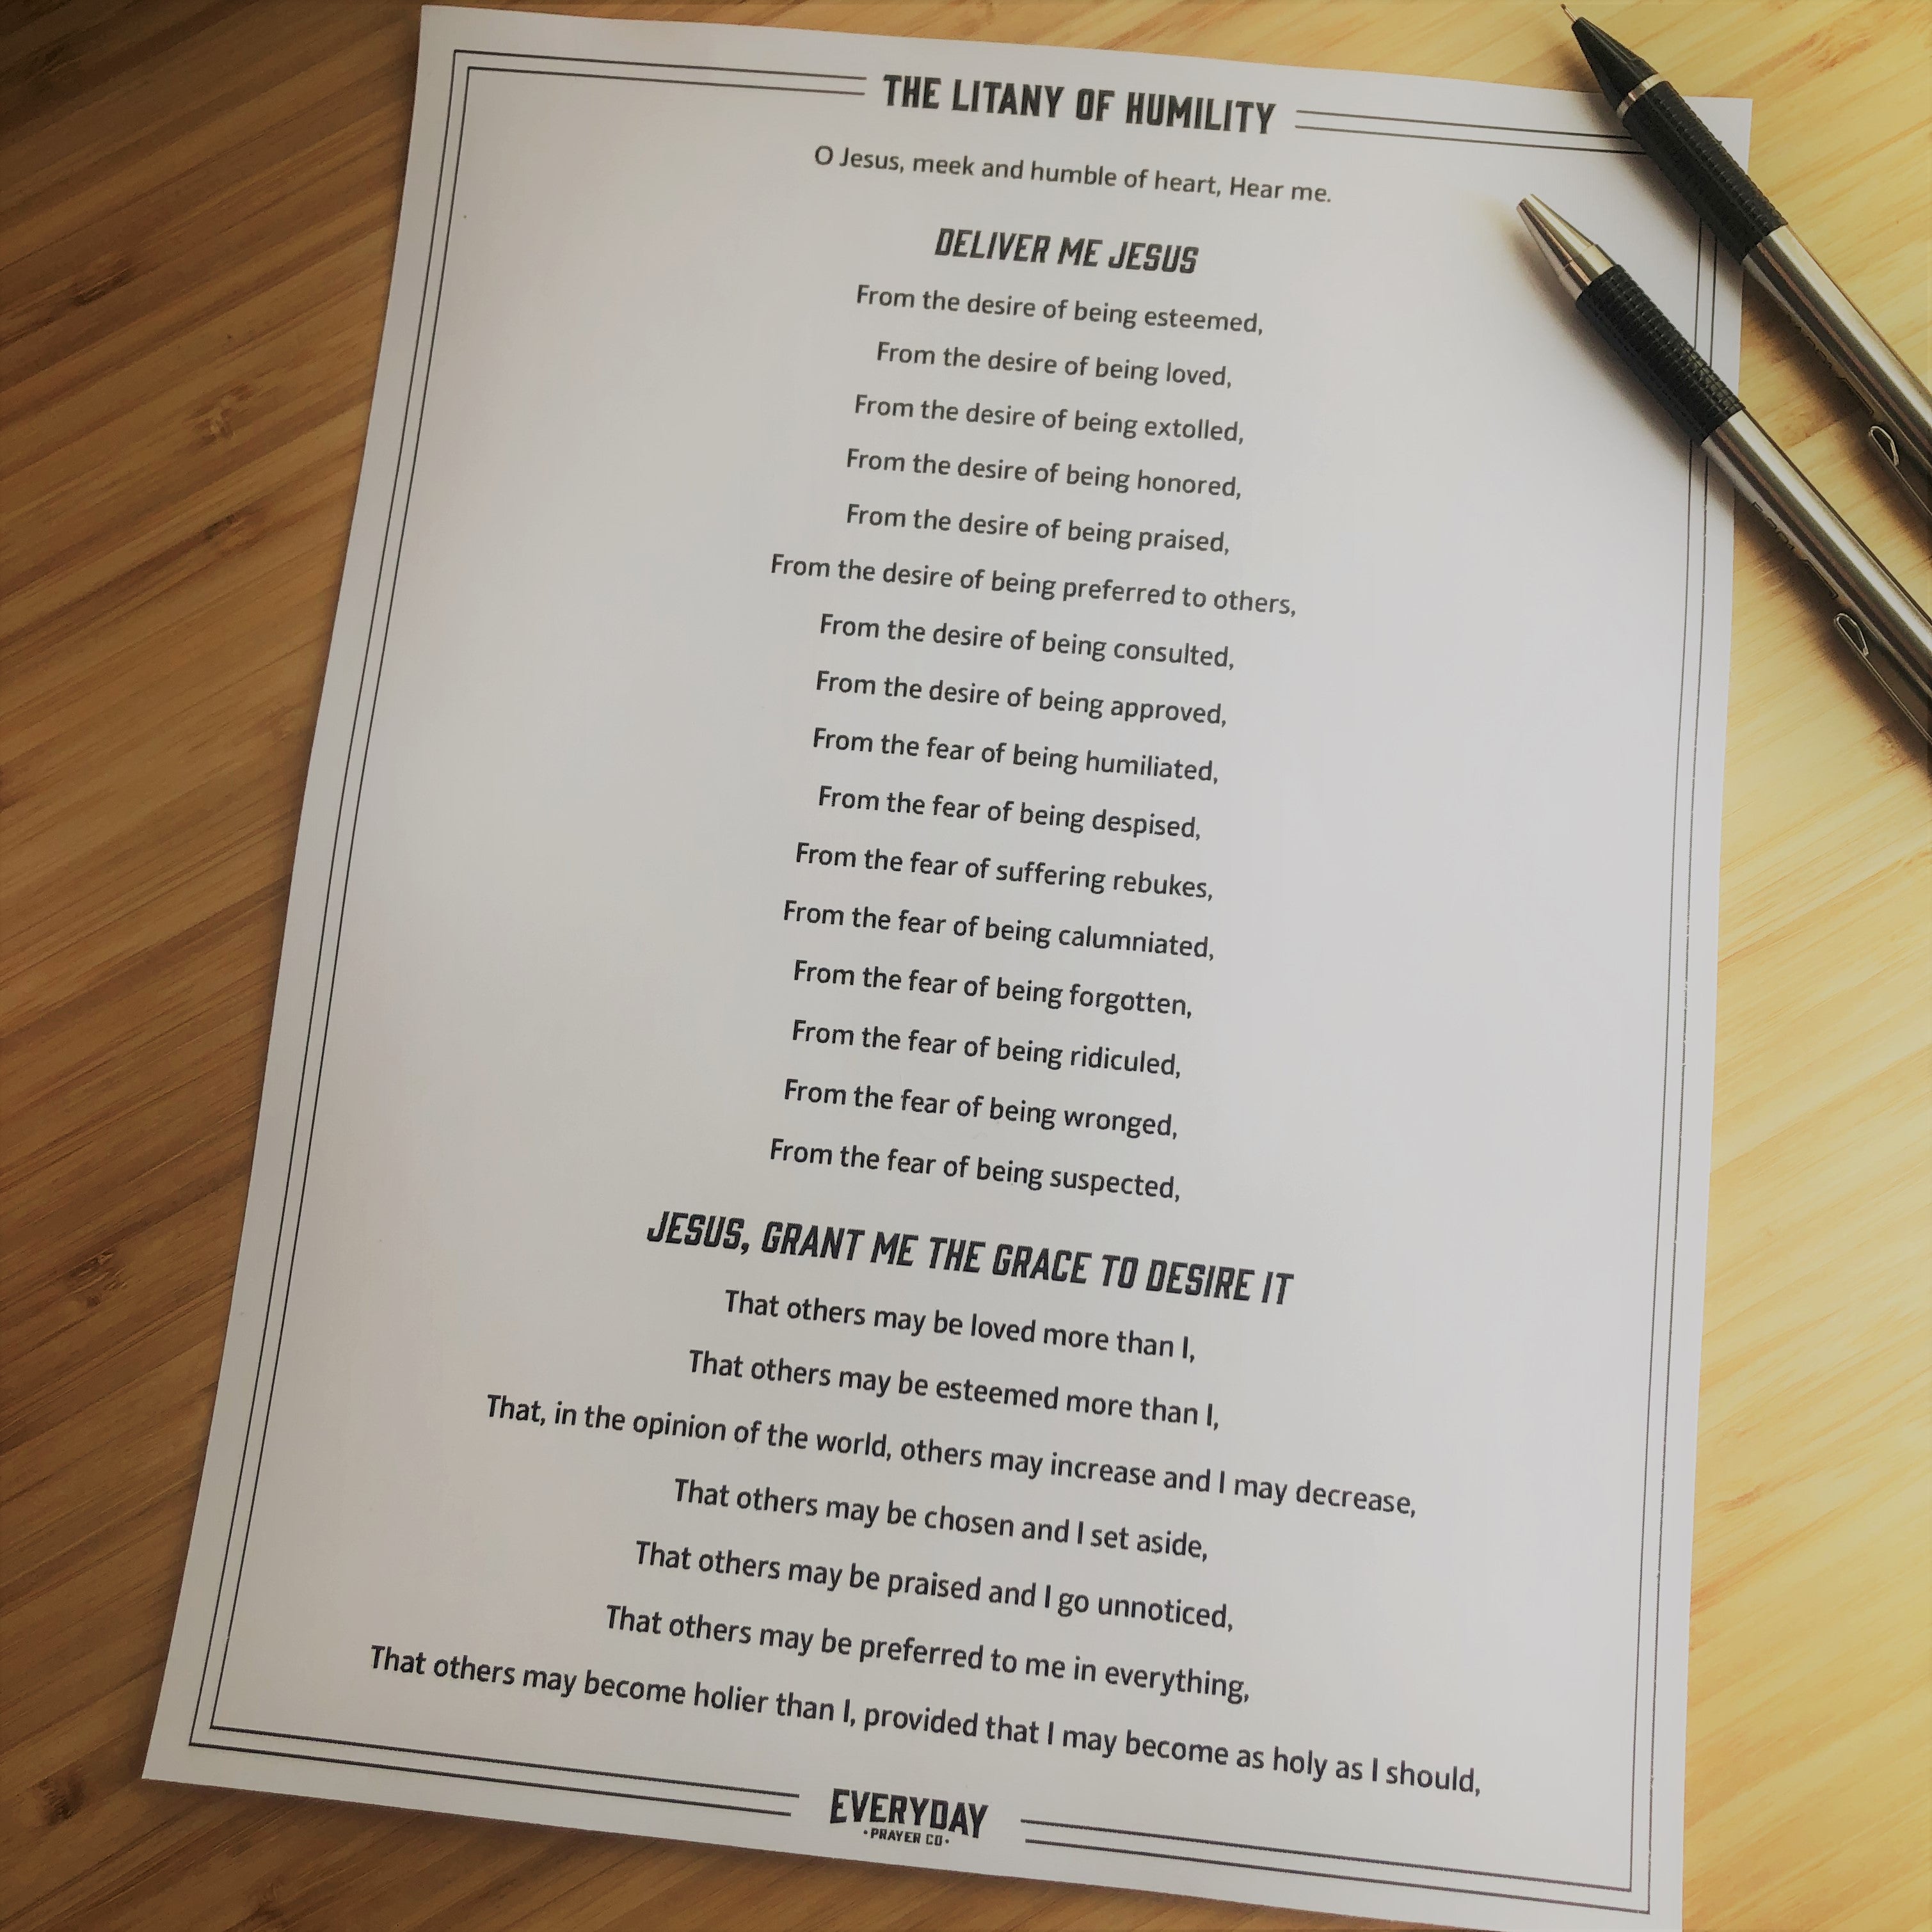 THE LITANY OF HUMILITY
O Jesus, meek and humble of heart, Hear me.
DELIVER ME JESUS
From the desire of being esteemed,
From the desire of being loved,
From the desire of being extolled,
From the desire of being honored,
From the desire of being praised,
From the desire of being preferred to others,
From the desire of being consulted,
From the desire of being approved,
From the fear of being humiliated,
From the fear of being despised,
From the fear of suffering rebukes,
From the fear of being calumniated,
From the fear of being forgotten,
From the fear of being ridiculed,
From the fear of being wronged,
From the fear of being suspected,
JESUS, GRANT ME THE GRACE TO DESIRE IT
That others may be loved more than I,
That others may be esteemed more than I,
That, in the opinion of the world, others may increase and I may decrease,
That others may be chosen and I set aside,
That others may be praised and I go unnoticed,
That others may be preferred to me in everything,
That others may become holier than I, provided that I may become as holy as I should,
EVERYDAY
·PRAYER CO·